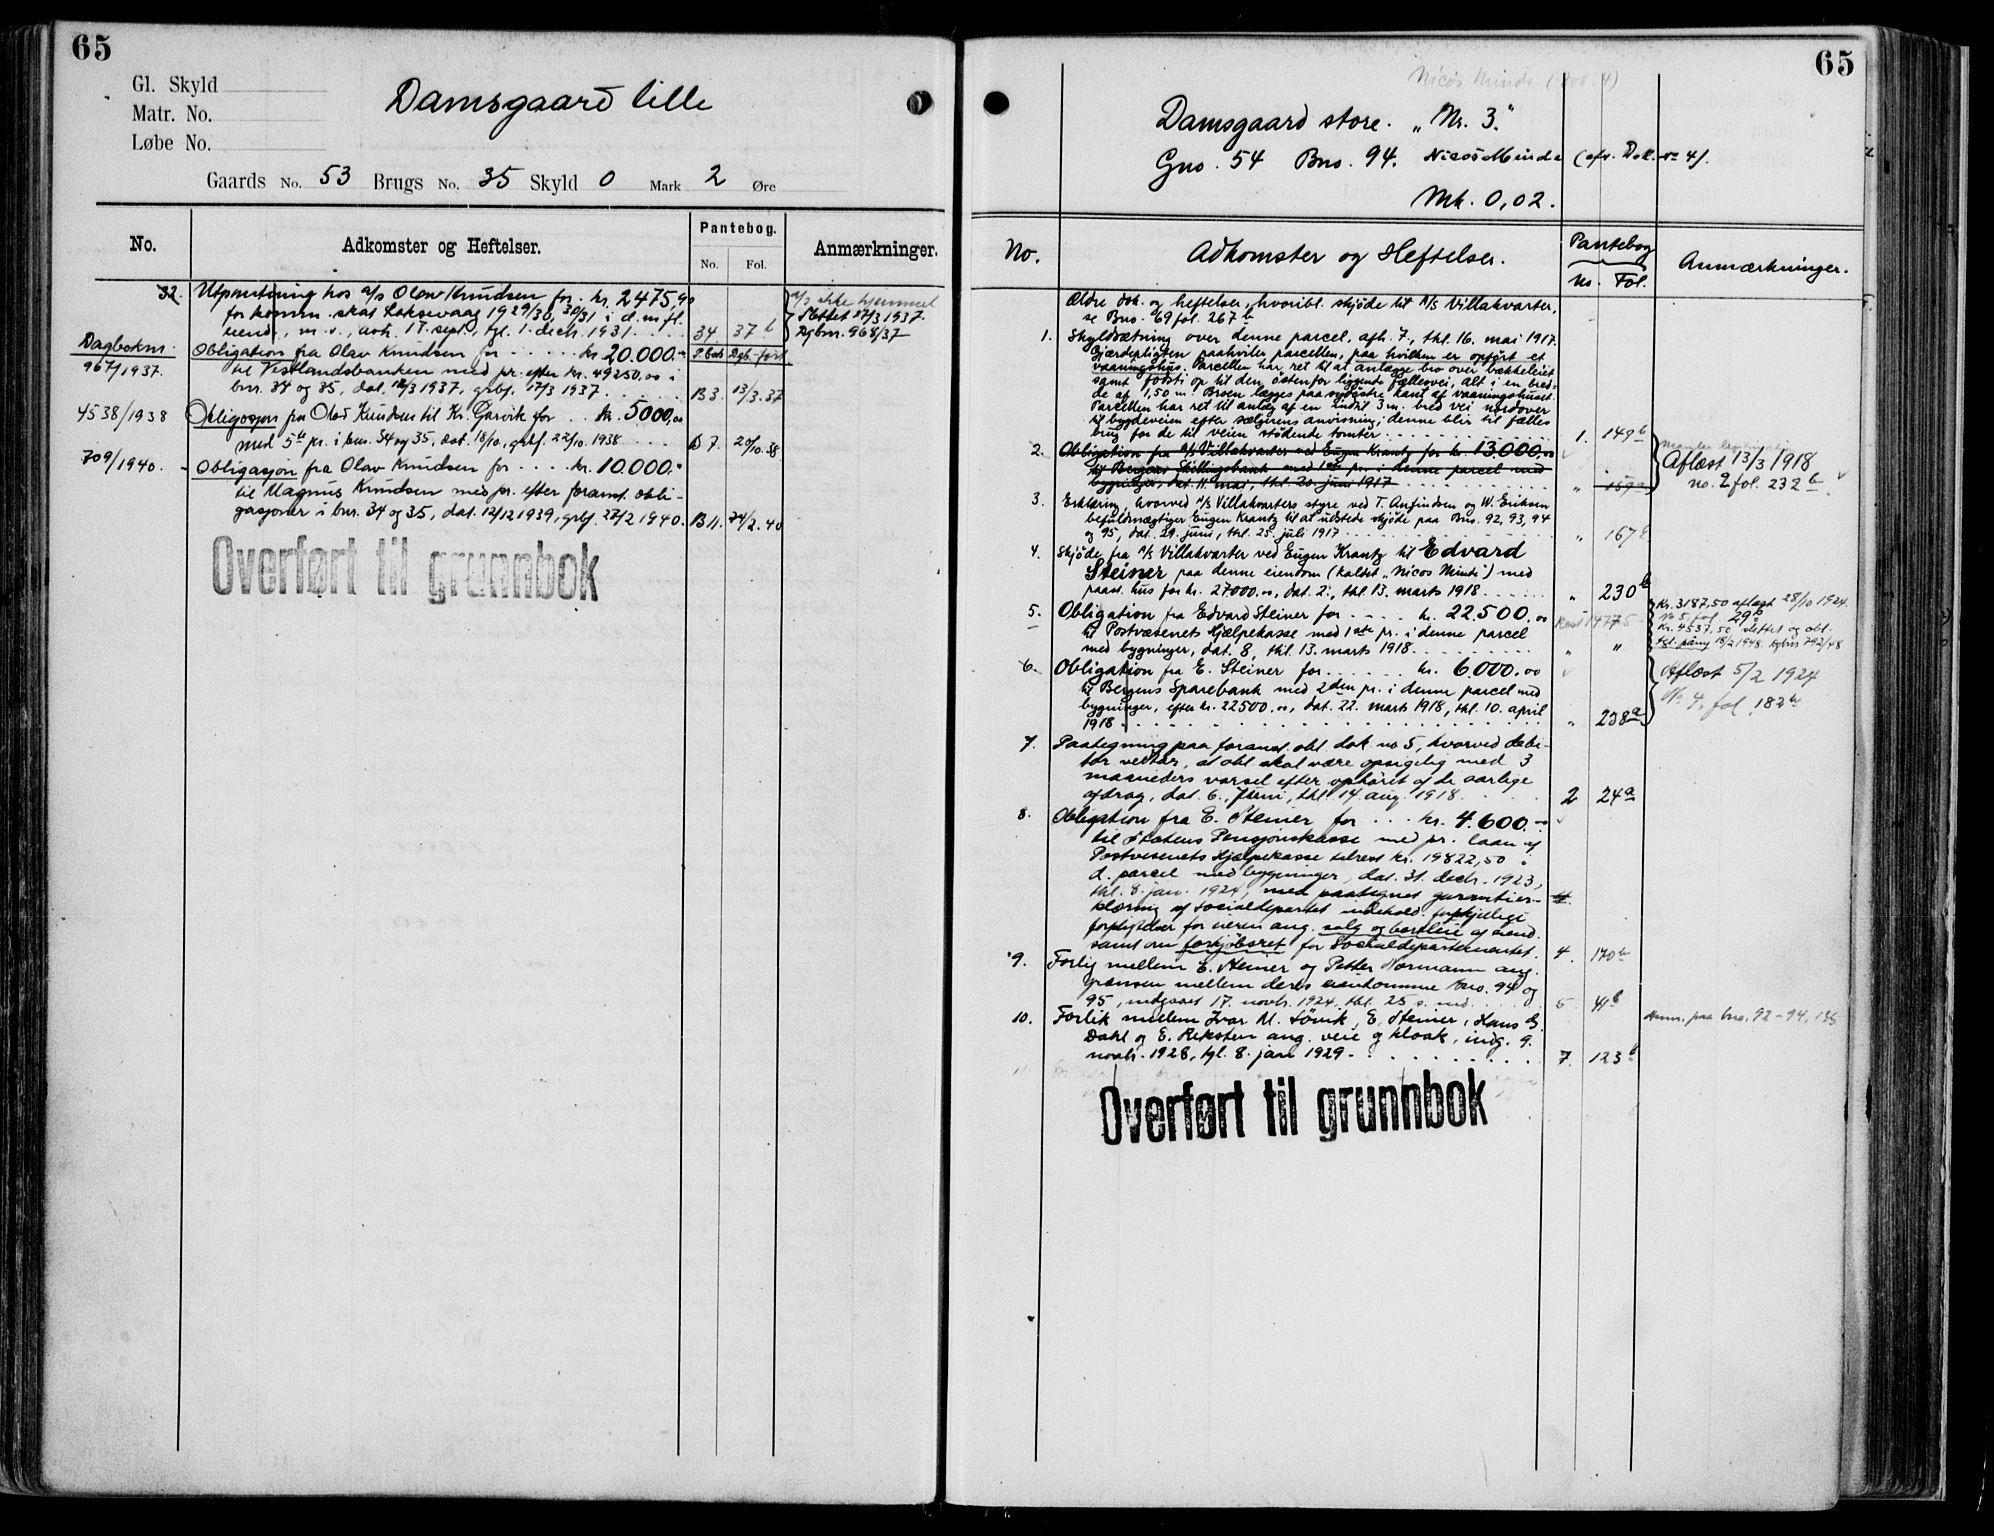 65
Gl. Skyld
Matr. No.
Løbe No.
Damsgaard lille
Gaards No. 53 Brugs No. 35 Skyld 0 Mark 2 Øre
No.
Adkomster og Heftelser.
Pantebog.
No. Fol.
Anmærkninger.
32. Utpantning hos a/s Olav Knudsen for kr. 2475,90
for komm. skat Laksevaag 1929/30, 30/31 i d. m. fl.
eiend., m. v., avh. 17. sept., tgl. 1. decbr. 1931. 34 37 b
a/s ikke hjemmel
Slettet 17/3 1937.
Dgbnr. 968/37
Dagboknr.
967/1937.
Obligation fra Olav Knudsen for kr. 20.000.-
til Vestlandsbanken med pr. efter kr. 49250,00 i
bnr. 34 og 35, dat. 12/3 1937, grbf. 17/3 1937. B 3. 13/3.37
4538/1938
Obligasjon fra Olav Knudsen til Kr. Garvik for kr. 5000,00
med 5te pr. i bnr. 34 og 35, dat. 18/10, grbf. 22/10. 1938 B 7. 20/10.38
709/1940.
Obligasjon fra Olav Knudsen for kr. 10.000.-
til Magnus Knudsen med pr. efter foramt. obli-
gasjoner i bnr. 34 og 35, dat. 12/12 1939, grbf. 27/2 1940. B 11. 24/2.40
Overført til grunnbok
65
Nicos Minde (Dok. 4)
Damsgaard store. „Nr. 3."
Gno. 54 Bno. 94. Nicos Minde (cfr. Dok. no 4).
Mk. 0,02.
No.
Adkomster og Heftelser.
Pantebog
No. Fol.
Anmærkninger.
Ældre dok. og heftelser, hvoribl. skjøde til A/S Villakvarter,
se Bno. 69 fol. 267 b
1. Skyldsætning over denne parcel, afh. 7., thl. 16. mai 1917.
Gjærdepligten paahviler parcellen, paa hvilken er opført et
vaaningshus. Parcellen har ret til at anlægge bro over bækkeleiet
samt fodsti op til den østenfor liggende fællesvei, alt i en bred-
de af 1,50 m. Broen lægges paa sydøstre kant af vaaningshuset.
Parcellen har ret til anlæg af en indtil 3 m. bred vei nordover
til bygdeveien efter sælgerens anvisning; denne blir til fælles
brug for de til veien stødende tomter. 1. 149 b
2. Obligation fra A/S Villakvarter ved Eugen Krantz for kr. 13000,00
til Bergens Skillingsbank med 1ste pr. i denne parcel med
bygninger, dat. 11. mai, thl. 20. juni 1917
Aflæst 13/3 1918
no. 2 fol. 232 b
3. Erklæring, hvorved A/S Villakvarters styre ved T. Anfindsen og W. Eriksen
befuldmægtiger Eugen Krantz til at udstede skjøde paa Bno. 92, 93, 94
og 95, dat. 29. juni, thl. 25. juli 1917 „ 167 b
4. Skjøde fra A/S Villakvarter ved Eugen Krantz til Edvard
Steiner paa denne eiendom (kaldet „Nicos Minde") med
paast. hus for kr. 27000.00, dat. 2., thl. 13. marts 1918. „ 230 b
5. Obligation fra Edvard Steiner for kr. 22.500,00
til Postvæsenets Hjælpekasse med 1ste pr. i denne parcel
med bygninger, dat. 8., thl. 13. marts 1918. „ „
Kr. 3187,50 aflæst 28/10 1924.
No 5. fol. 29 b
Kr. 4537,50 slettet og obl.
6. Obligation fra E. Steiner for kr. 6000.00
til Bergens Sparebank med 2den pr. i denne parcel med
bygninger, efter kr. 22500.00, dat. 22. marts 1918, thl. 10. april
1918. „ 238 a
Aflæst 5/2 1924
No 4. fol 182 b
7. Paategning paa foranst. obl. dok. no 5, hvorved debi-
tor vedtar, at obl. skal være opsigelig med 3
maaneders varsel efter ophøret af de aarlige
afdrag, dat. 6. juni, thl. 14. aug. 1918. 2 24 a
8. Obligation fra E. Steiner for kr. 4.600.-
til Statens Pensjonskasse med pr. laan af
Postvesenets Hjælpekasse tilrest kr. 19822,50 i
d. parcel med bygninger, dat. 31. decbr. 1923,
thl. 8. jan. 1924, med paategnet garantier-
klæring af Socialdepartet indehold. forskjellige
forpligtelser for eieren ang. salg og bortleie af eiend.
samt om forkjøbsret for Socialdepartementet. 4. 170 b
9. Forlig mellem E. Steiner og Petter Normann ang.
grænsen mellem deres eiendomme bno. 94 og
95, indgaaet 17. novbr. 1924, thl. 25 s. md. 5 41 b
10. Forlik mellem Ivar M. Søvik, E. Steiner, Hans G.
Dahl og E. Riksten ang. veie og kloak, indg. 9.
novbr. 1928, tgl. 8. jan 1929. 7. 123 b
Anm. paa bno. 92-94, 135
Overført til grunnbok